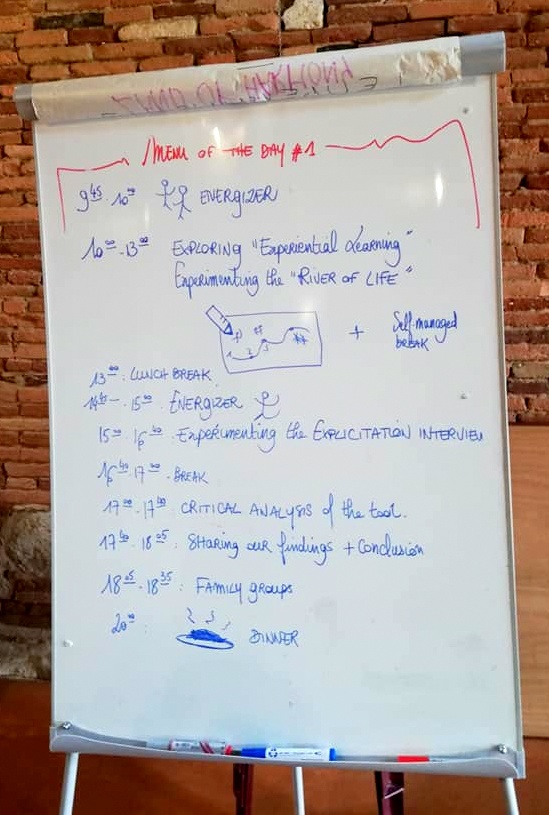 MENU OF THE DAY #1
9⁴⁵ - 10⁰⁰ ENERGIZER
10⁰⁰ - 13⁰⁰ EXPLORING "Experiential Learning"
Experimenting the "RIVER OF LIFE"
+ Self-managed
BREAK
13⁰⁰ : LUNCH BREAK
14⁴⁵ - 15⁰⁰ ENERGIZER
15⁰⁰ - 16⁴⁰ Experimenting the EXPLICITATION INTERVIEW
16⁴⁰ - 17⁰⁰ - BREAK
17⁰⁰ - 17⁴⁰ : CRITICAL ANALYSIS of the tool.
17⁴⁰ - 18⁰⁵ : Sharing our findings + Conclusion
18⁰⁵ - 18³⁵ : FAMILY groups
20⁰⁰ : DINNER